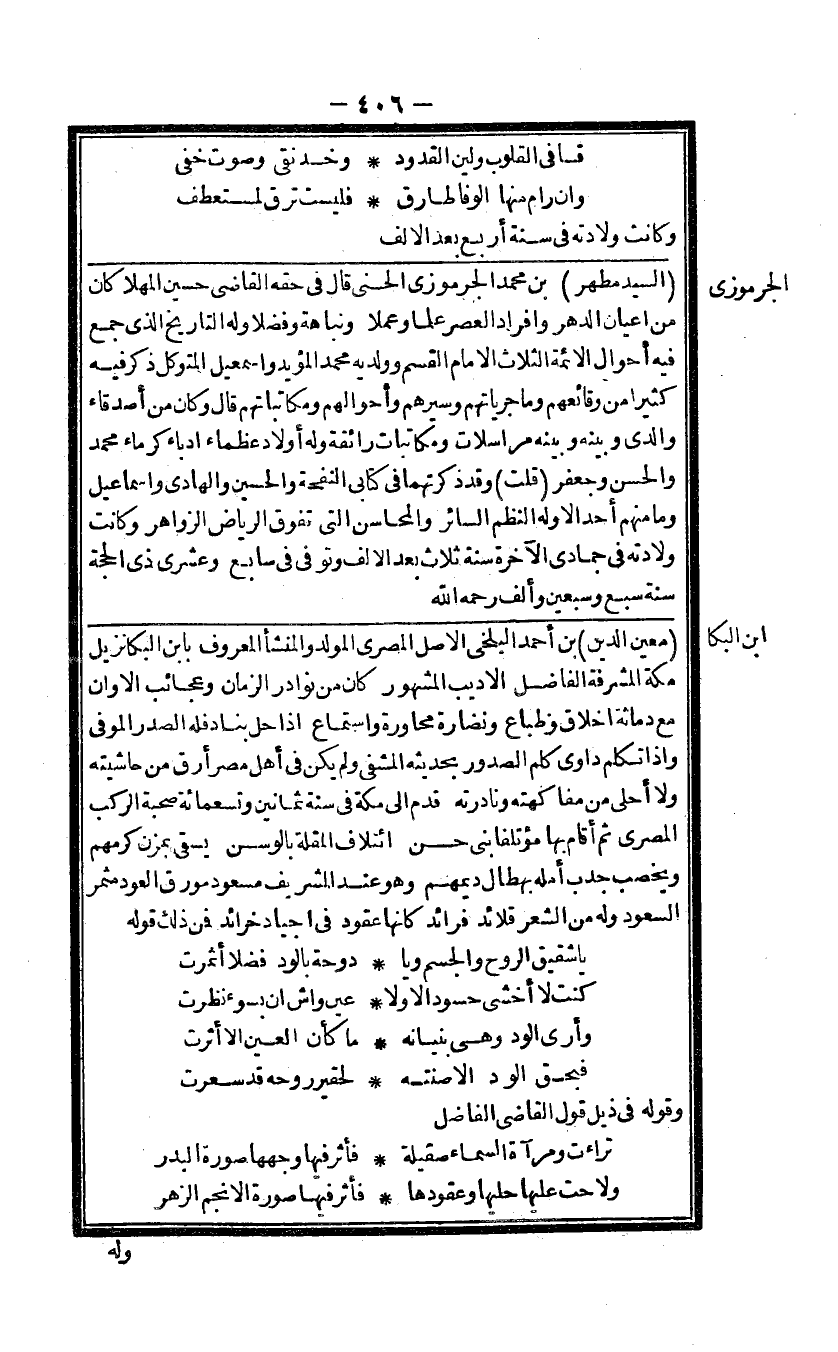 — ٤٠٦ —
قسا فى القلوب ولين القدود * وخد نقى وصوت خفى
وان رام منها الوفا طارق * فليست ترق لمستعطف
وكانت ولادته فى سنة أربع بعد الالف
الجرموزى
(السيد مطهر) بن محمد الجرموزى الحسنى قال فى حقه القاضى حسين المهلا كان
من اعيان الدهر وافراد العصر علما وعملا ونباهة وفضلا وله التاريخ الذى جمع
فيه أحوال الائمة الثلاث الامام القسم وولديه محمد المؤيد واسمعيل المتوكل ذكر فيه
كثيرا من وقائعهم وماجرياتهم وسيرهم وأحوالهم ومكاتباتهم قال وكان من أصدقاء
والدى وبينه وبينه مراسلات ومكاتبات رائقة وله أولاد عظماء ادباء كرماء محمد
والحسن وجعفر (قلت) وقد ذكرتهما فى كتابى النفحة والحسين والهادى واسماعيل
وما منهم أحد الا وله النظم السائر والمحاسن التى تفوق الرياض الزواهر وكانت
ولادته فى جمادى الآخرة سنة ثلاث بعد الالف وتوفى فى سابع وعشرى ذى الحجة
سنة سبع وسبعين وألف رحمه الله
ابن البكا
(معين الدين) بن أحمد البلخى الاصل المصرى المولد والمنشأ المعروف بابن البكا نزيل
مكة المشرفة الفاضل الاديب المشهور كان من نوادر الزمان وعجائب الاوان
مع دماثة اخلاق وطباع ونضارة محاورة واستماع اذا حل بناد فله الصدر الموفى
واذا تكلم داوى كلم الصدور بحديثه المشفى ولم يكن فى أهل مصر أرق من حاشيته
ولا أحلى من مفاكهته ونادرته قدم الى مكة فى سنة ثمانين وتسعمائة صحبة الركب
المصرى ثم أقام بها مؤتلفا بنى حسن ائتلاف المقلة بالوسن يسقى بمزن كرمهم
ويخصب جدب أمله بهطال ديمهم وهو عند الشريف مسعود مورق العود مثمر
السعود وله من الشعر قلائد فرائد كانها عقود فى اجياد خرائد فمن ذلك قوله
ياشقيق الروح والجسم ويا * دوحة بالود فضلا أثمرت
كنت لا أخشى حسود الا ولا * عين واش ان بسوء نظرت
وأرى الود وهى بنيانه * ما كأن العين الا أثرت
فبحق الود الا صنته * لحقير روحه قد سعرت
وقوله فى ذيل قول القاضى الفاضل
تراءت ومرآة السماء صقيلة * فأثر فيها وجهها صورة البدر
ولاحت عليها حليها وعقودها * فأثر فيها صورة الانجم الزهر
وله